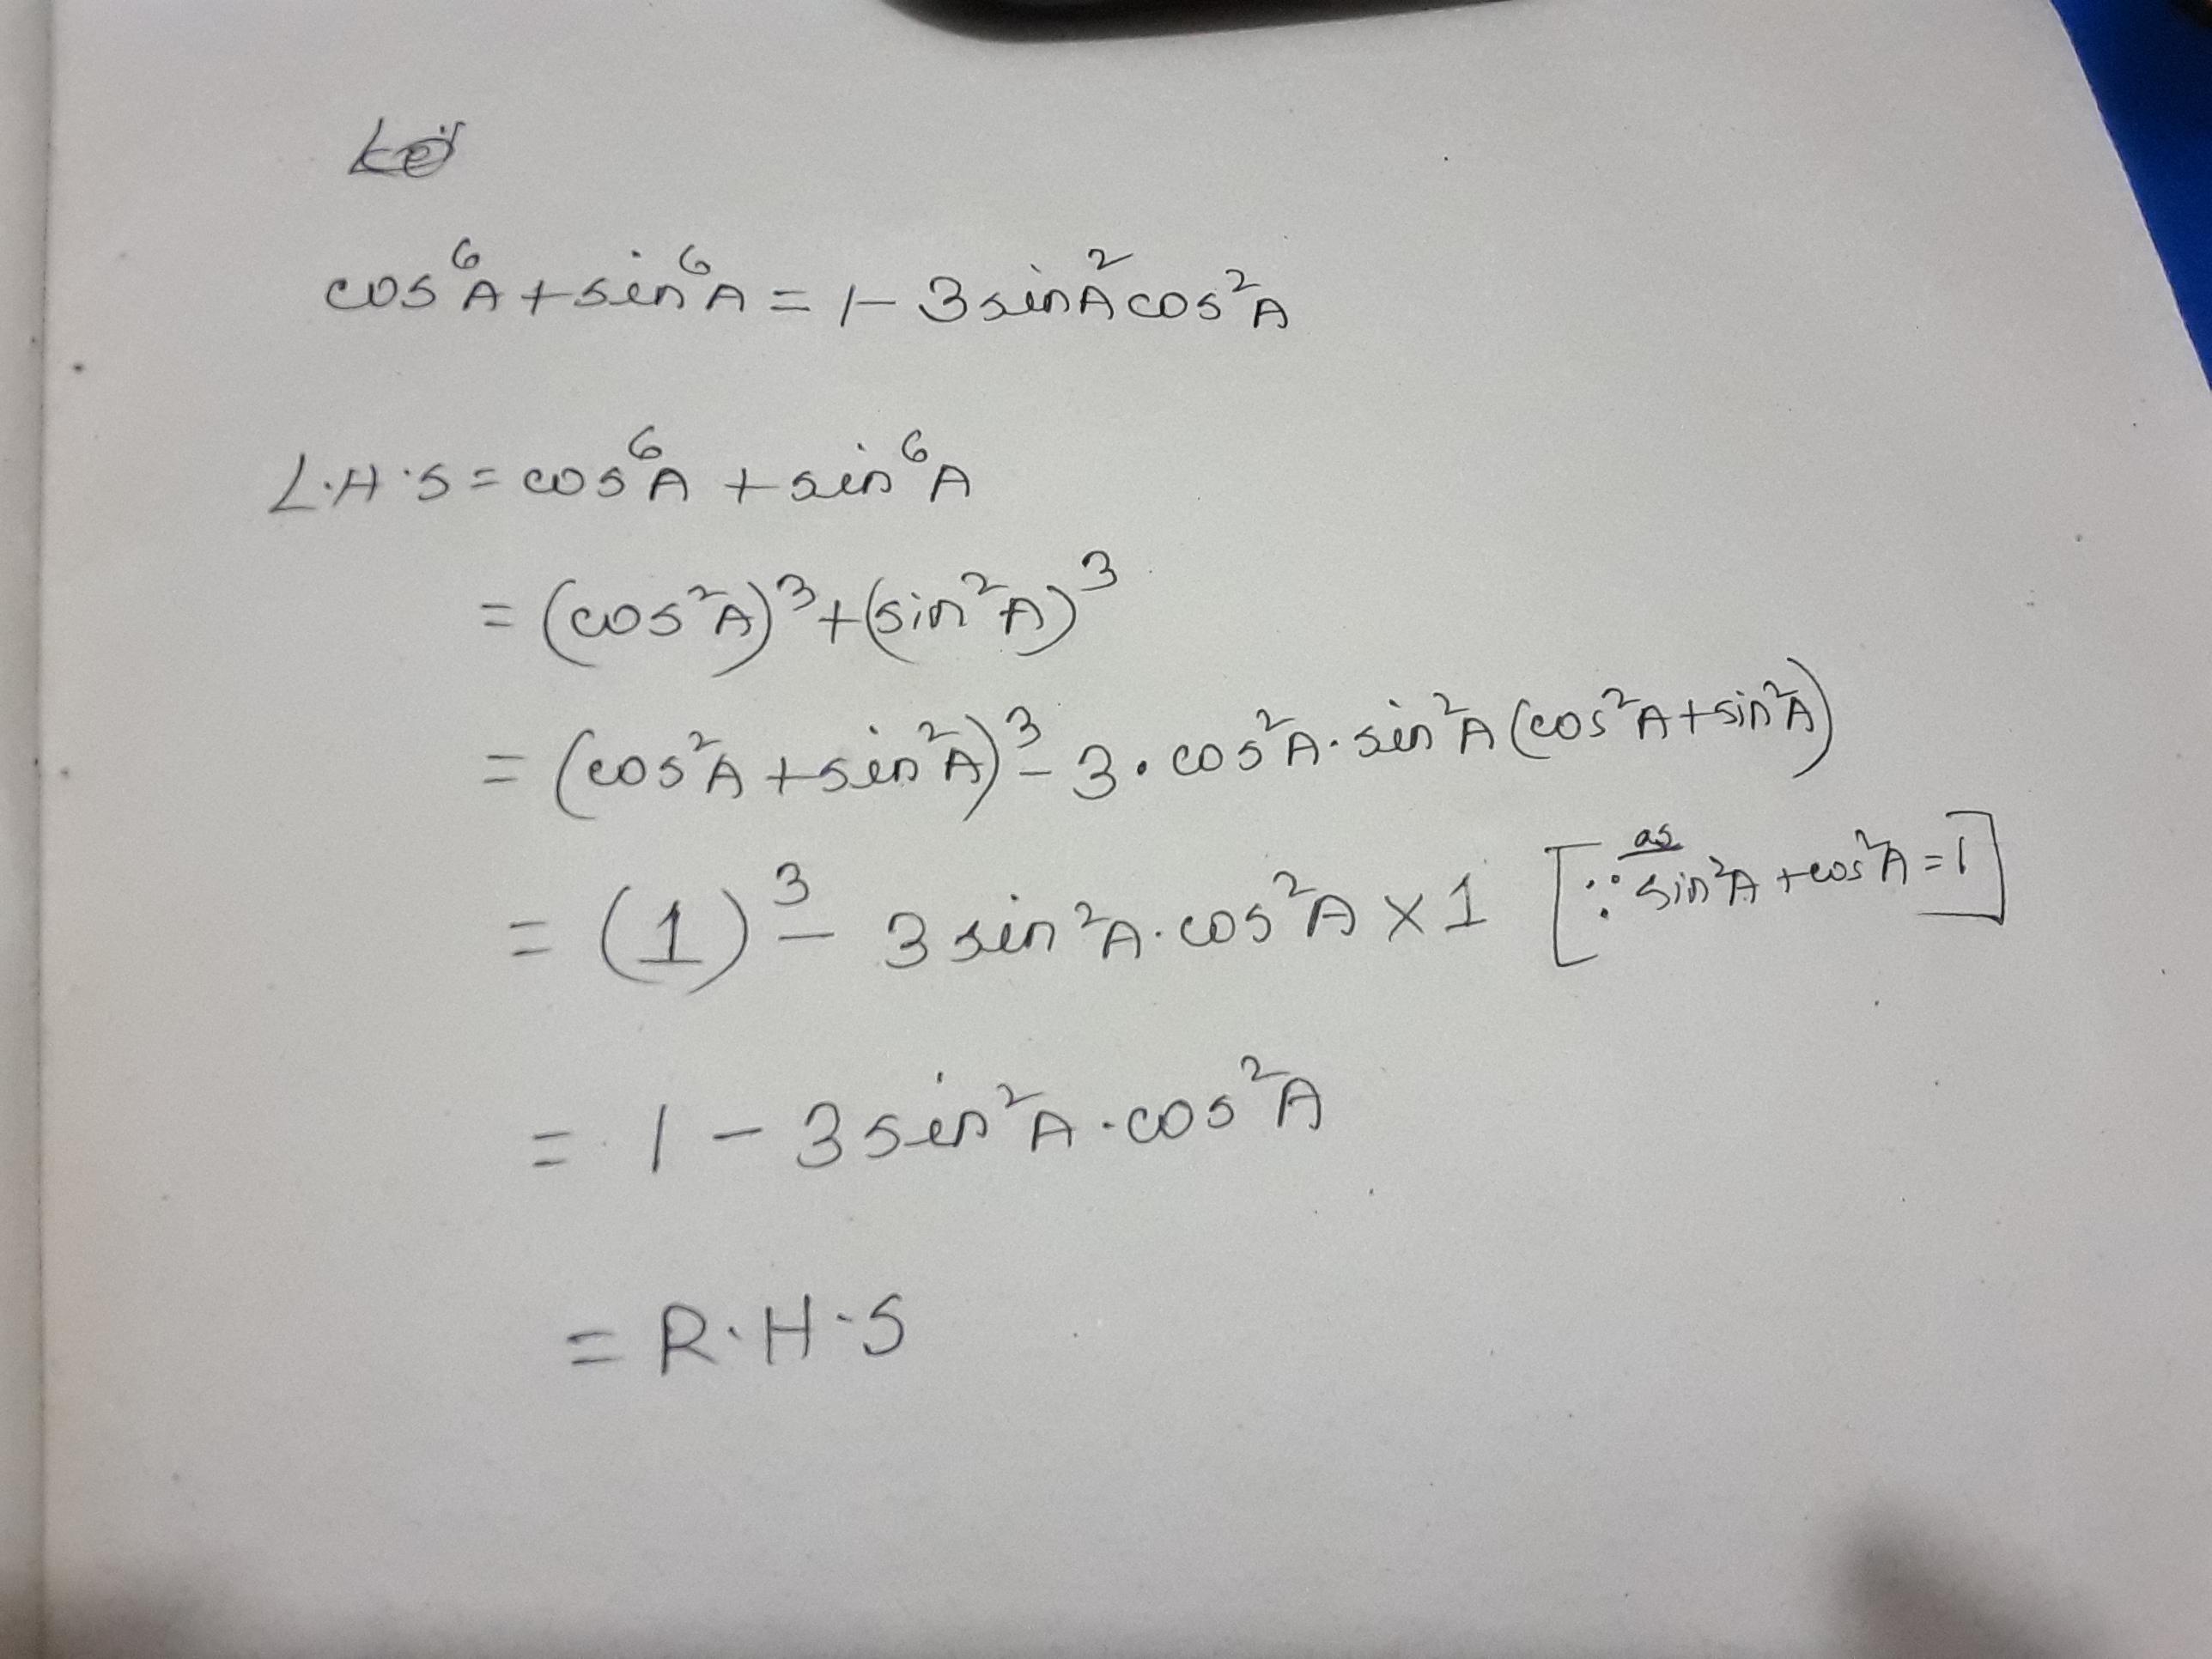 cos⁶A + sin⁶A = 1 - 3 sin²A cos²A
L.H.S = cos⁶A + sin⁶A
= (cos²A)³ + (sin²A)³
= (cos²A + sin²A)³ - 3 · cos²A · sin²A (cos²A + sin²A)
= (1)³ - 3 sin²A · cos²A × 1 [∵ as sin²A + cos²A = 1]
= 1 - 3 sin²A · cos²A
= R.H.S